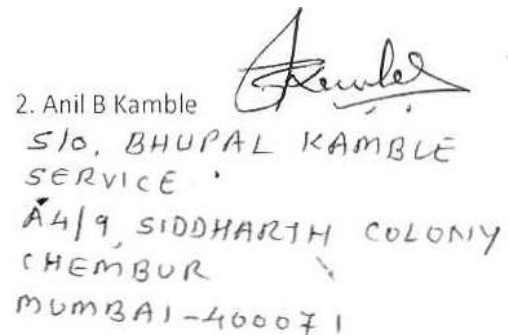 2. Anil B Kamble
S/o, BHUPAL KAMBLE
SERVICE
A4/9, SIDDHARTH COLONY
CHEMBUR
MUMBAI-400071